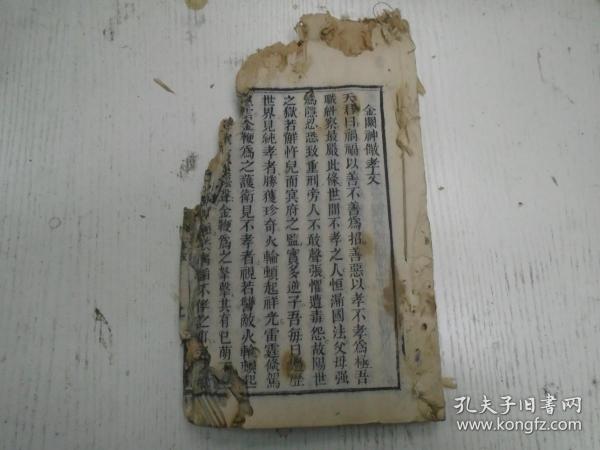 金闕神儆孝文
天尊曰禍福以善不善為招善惡以孝不孝為極吾
職糾察最嚴此條世間不孝之人恒漏國法父母强
為隱忍恐致重刑旁人不敢聲張懼遭毒怨故陽世
之獄若鮮忤兒而冥府之監實多逆子吾每日遊歷
世界見純孝者勝獲珍奇火輪頓起祥光雷霆倏駕
雲金鞭為之護衛見不孝者視若讐敵火輪頓起
聲金鞭為之擊其有已萌
不
孔夫子旧书网
www.kongfz.com